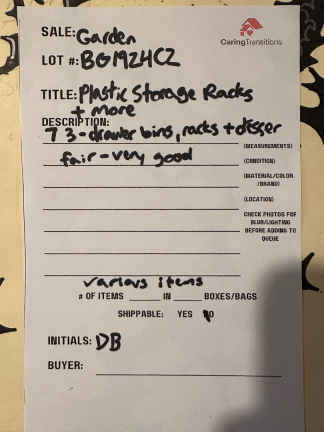 SALE: Garden
CaringTransitions
LOT #: BGMZHCZ
TITLE: Plastic Storage Racks
+ more
DESCRIPTION:
7 3-drawer bins, racks + desser
(MEASUREMENTS)
fair - very good
(CONDITION)
(MATERIAL/COLOR
/BRAND)
(LOCATION)
CHECK PHOTOS FOR
BLUR/LIGHTING
BEFORE ADDING TO
QUEUE
various items
# OF ITEMS ____ IN ____ BOXES/BAGS
SHIPPABLE: YES NO
INITIALS: DB
BUYER: